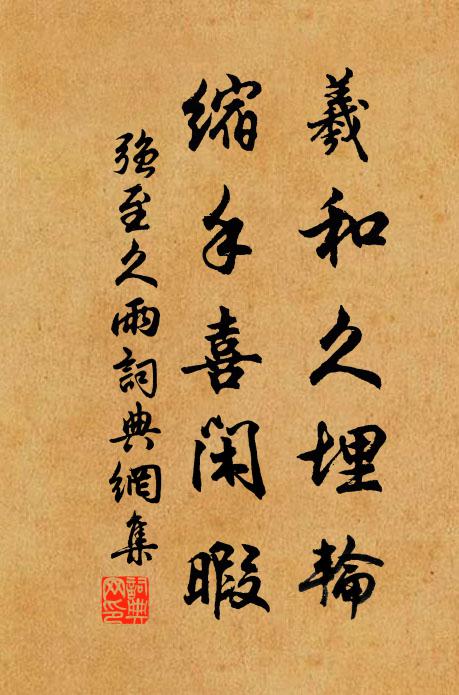 羲和久埋輪
縮手喜閑暇
強至久雨詞典網集
詞典
网印